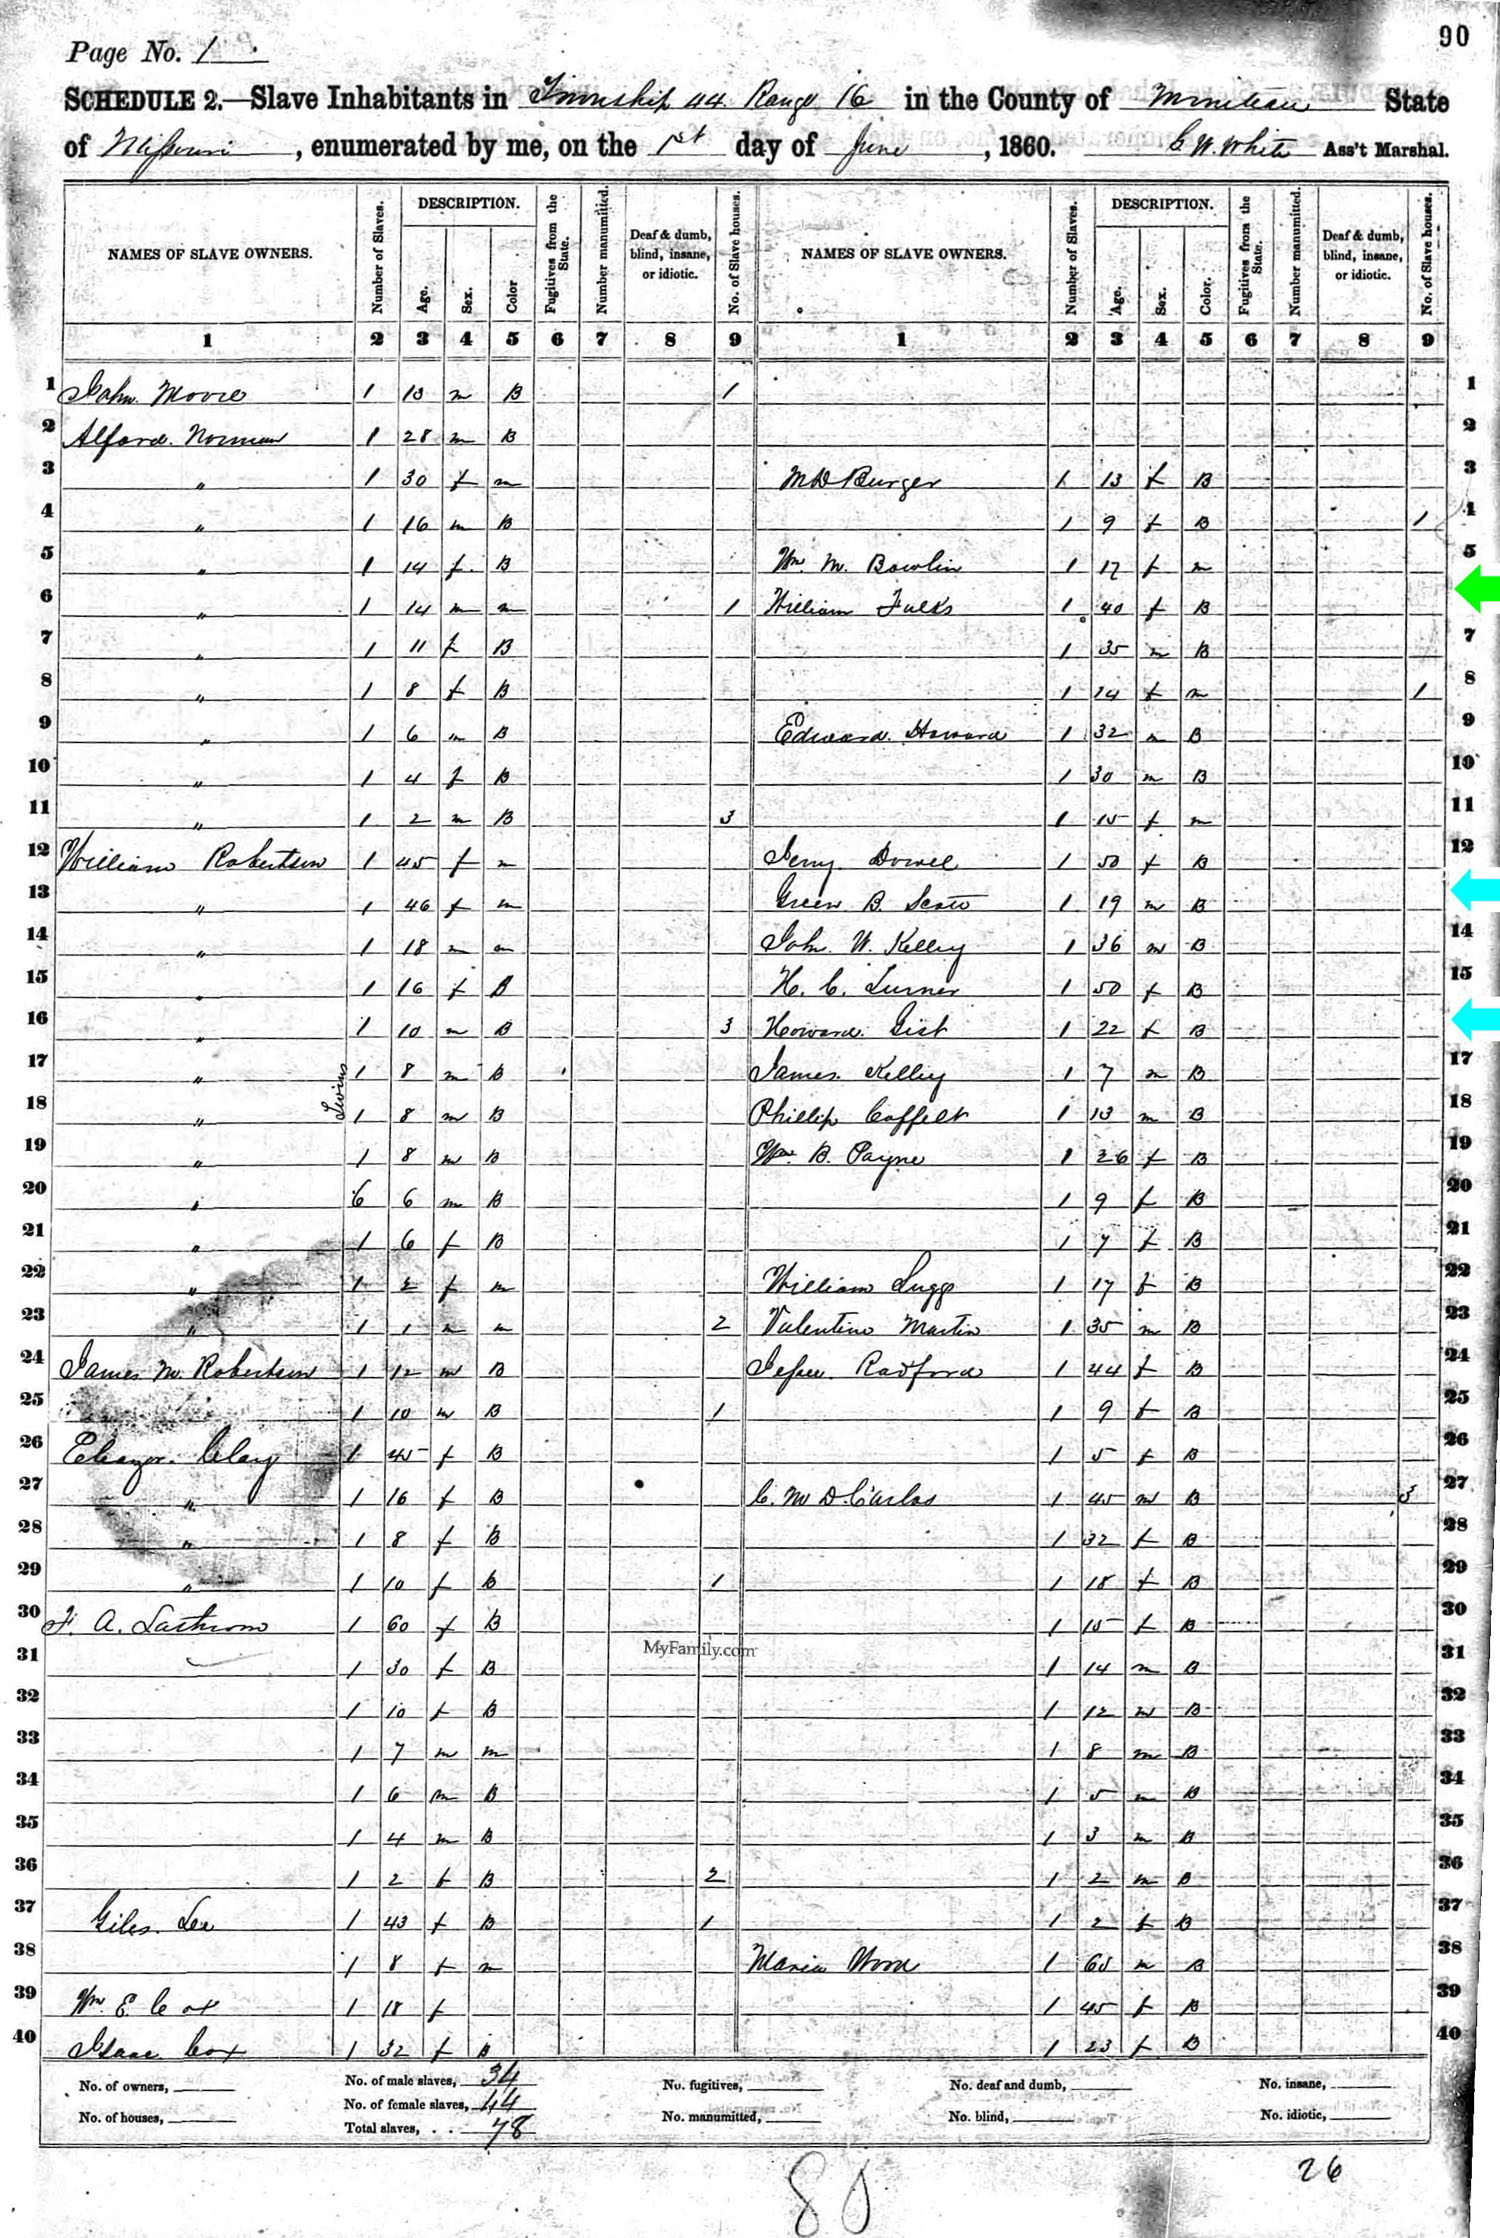 90
Page No. 1
SCHEDULE 2.—Slave Inhabitants in Township 44 Range 16 in the County of Moniteau State
of Missouri, enumerated by me, on the 1st day of June, 1860. C. W. White Ass't Marshal.
NAMES OF SLAVE OWNERS. Number of Slaves. DESCRIPTION. Age. Sex. Color Fugitives from the State. Number manumitted. Deaf & dumb, blind, insane, or idiotic. No. of Slave houses. NAMES OF SLAVE OWNERS. Number of Slaves. DESCRIPTION. Age. Sex. Color. Fugitives from the State. Number manumitted. Deaf & dumb, blind, insane, or idiotic. No. of Slave houses.
1 2 3 4 5 6 7 8 9 1 2 3 4 5 6 7 8 9
1 John Moore 1 13 m B 1 1
2 Alford Norman 1 28 m B 2
3 " 1 30 f m M D Burger 1 13 f B 3
4 " 1 16 m B 1 9 f B 1 4
5 " 1 14 f B Wm. M. Bowlin 1 17 f m 5
6 " 1 14 m m 1 William Fulks 1 40 f B 6
7 " 1 11 f B 1 35 m B 7
8 " 1 8 f B 1 14 f m 1 8
9 " 1 6 m B Edward Howard 1 32 m B 9
10 " 1 4 f B 1 30 m B 10
11 " 1 2 m B 3 1 15 f m 11
12 William Robertson 1 45 f m Jerry Dowel 1 50 f B 12
13 " 1 46 f m Green B. Scott 1 19 m B
14 " 1 18 m m John W. Kelley 1 36 m B 14
15 " 1 16 f B H. C. Turner 1 50 f B 15
16 " 1 10 m B 3 Howard Gist 1 22 f B
17 " Twins 1 8 m B James Kelley 1 7 m B 17
18 " 1 8 m B Phillip Coffelt 1 13 m B 18
19 " 1 8 m B Wm. B. Payne 1 26 f B 19
20 " 6 6 m B 1 9 f B 20
21 " 1 6 f B 1 7 f B 21
22 " 1 2 f m William Sugg 1 17 f B 22
23 " 1 1 m m 2 Valentine Martin 1 35 m B 23
24 James M. Robertson 1 12 m B Jesse Radford 1 44 f B 24
25 1 10 m B 1 1 9 f B 25
26 Eleanor Clay 1 45 f B 1 5 f B 26
27 " 1 16 f B C. M D Carlos 1 45 m B 3 27
28 " 1 8 f B 1 32 f B 28
29 " 1 10 f B 1 1 18 f B 29
30 F. A. 1 60 f B 1 15 f B 30
31 1 30 f B MyFamily.com 1 14 m B 31
32 1 10 f B 1 12 m B 32
33 1 7 m m 1 8 m B 33
34 1 6 m B 1 5 m B 34
35 1 4 m B 1 3 m B 35
36 1 2 f B 2 1 2 m B 36
37 Giles Lee 1 43 f B 1 1 2 f B 37
38 1 8 f m Maria Wood 1 65 m B 38
39 Wm. E. Cox 1 18 f 1 45 f B 39
40 Isaac Cox 1 32 f B 1 23 f B 40
No. of owners, No. of male slaves, 34 No. fugitives, No. deaf and dumb, No. insane,
No. of houses, No. of female slaves, 44 No. manumitted, No. blind, No. idiotic,
Total slaves, . . 78
80 26